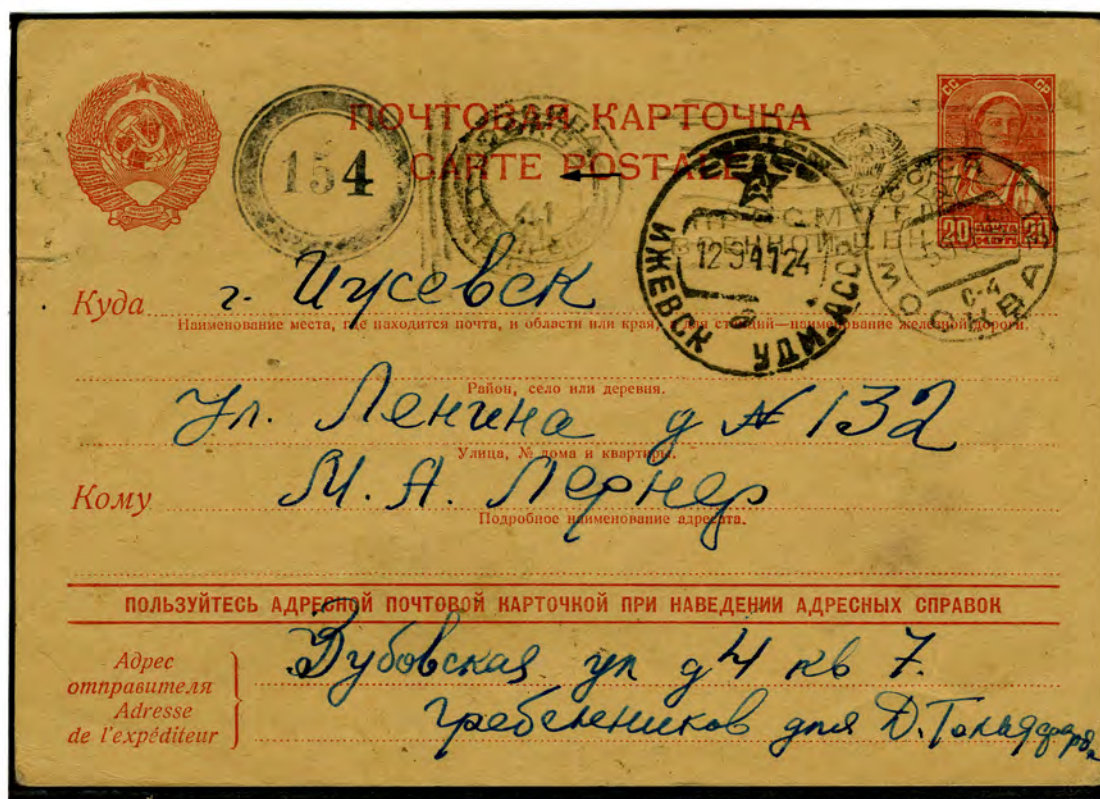 ПОЧТОВАЯ КАРТОЧКА
CARTE POSTALE
СС СР
20 ПОЧТА 20
154
41
ПРОСМОТРЕНО
ВОЕННОЙ ЦЕНЗУРОЙ
12 9 41 12 4
ИЖЕВСК УДМ.АССР
д
МОСКВА
С-4
Куда г. Ижевск
Наименование места, где находится почта, и области или края, а для станций—наименование железной дороги.
Район, село или деревня.
Ул. Ленина д № 132
Улица, № дома и квартиры.
Кому М. А. Лернер
Подробное наименование адресата.
ПОЛЬЗУЙТЕСЬ АДРЕСНОЙ ПОЧТОВОЙ КАРТОЧКОЙ ПРИ НАВЕДЕНИИ АДРЕСНЫХ СПРАВОК
Адрес
отправителя
Adresse
de l'expéditeur
Зубовская ул д 4 кв 7.
Гребенников для Д.